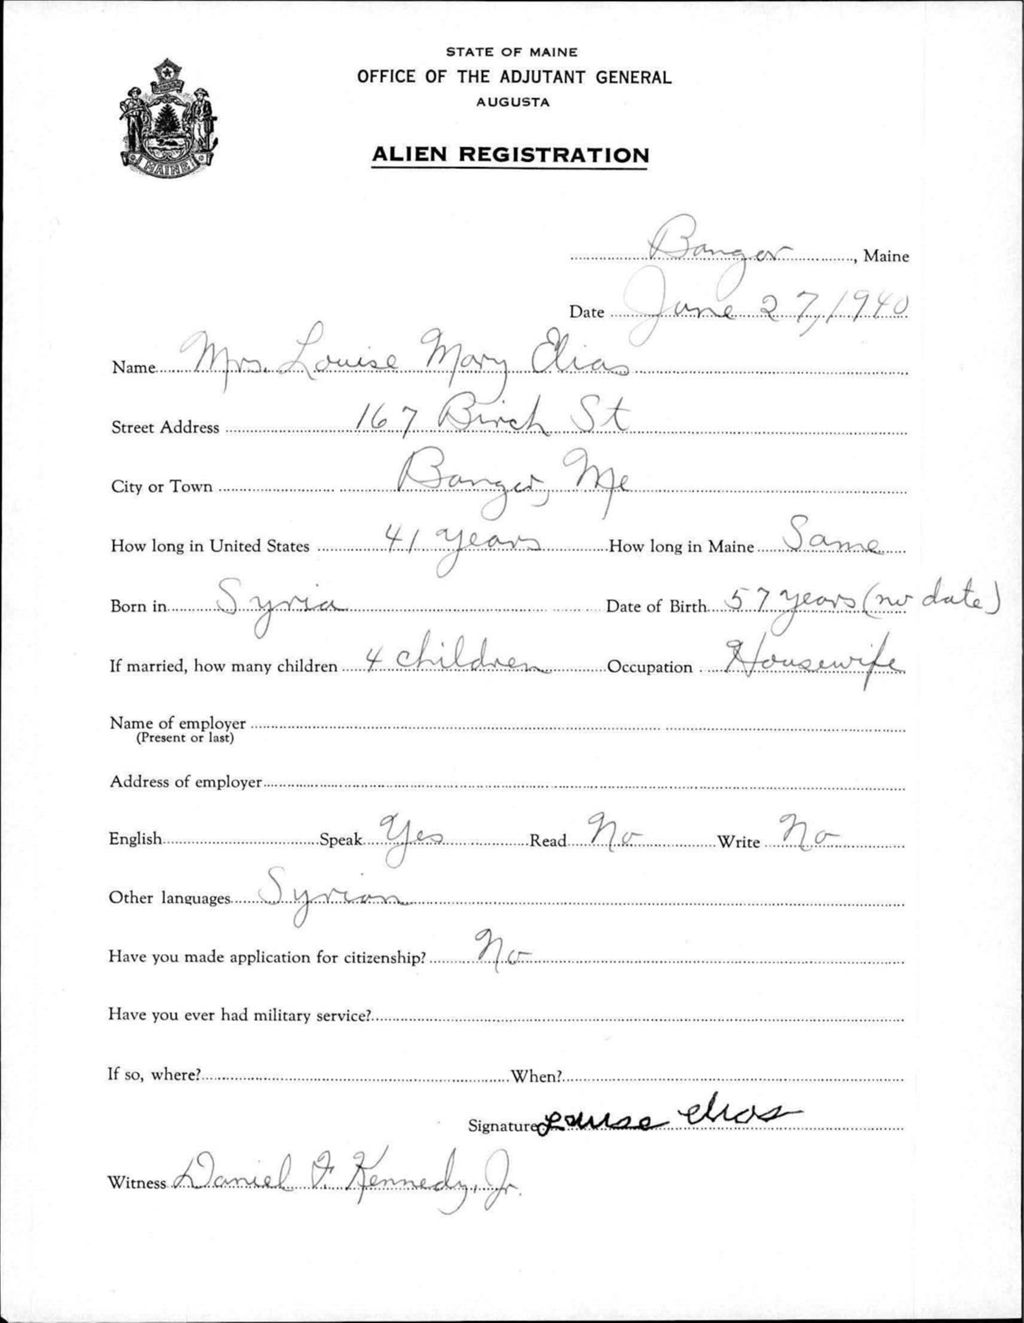 STATE OF MAINE
OFFICE OF THE ADJUTANT GENERAL
AUGUSTA
ALIEN REGISTRATION
MAINE
Bangor, Maine
Date June 27, 1940
Name Mrs. Louise Mary Elias
Street Address 167 Birch St
City or Town Bangor, Me
How long in United States 41 years How long in Maine Same
Born in Syria Date of Birth 57 years (no date)
If married, how many children 4 children Occupation Housewife
Name of employer
(Present or last)
Address of employer
English Speak Yes Read No Write No
Other languages Syrian
Have you made application for citizenship? No
Have you ever had military service?
If so, where? When?
Signature Louise Elias
Witness Daniel F. Kennedy, Jr.